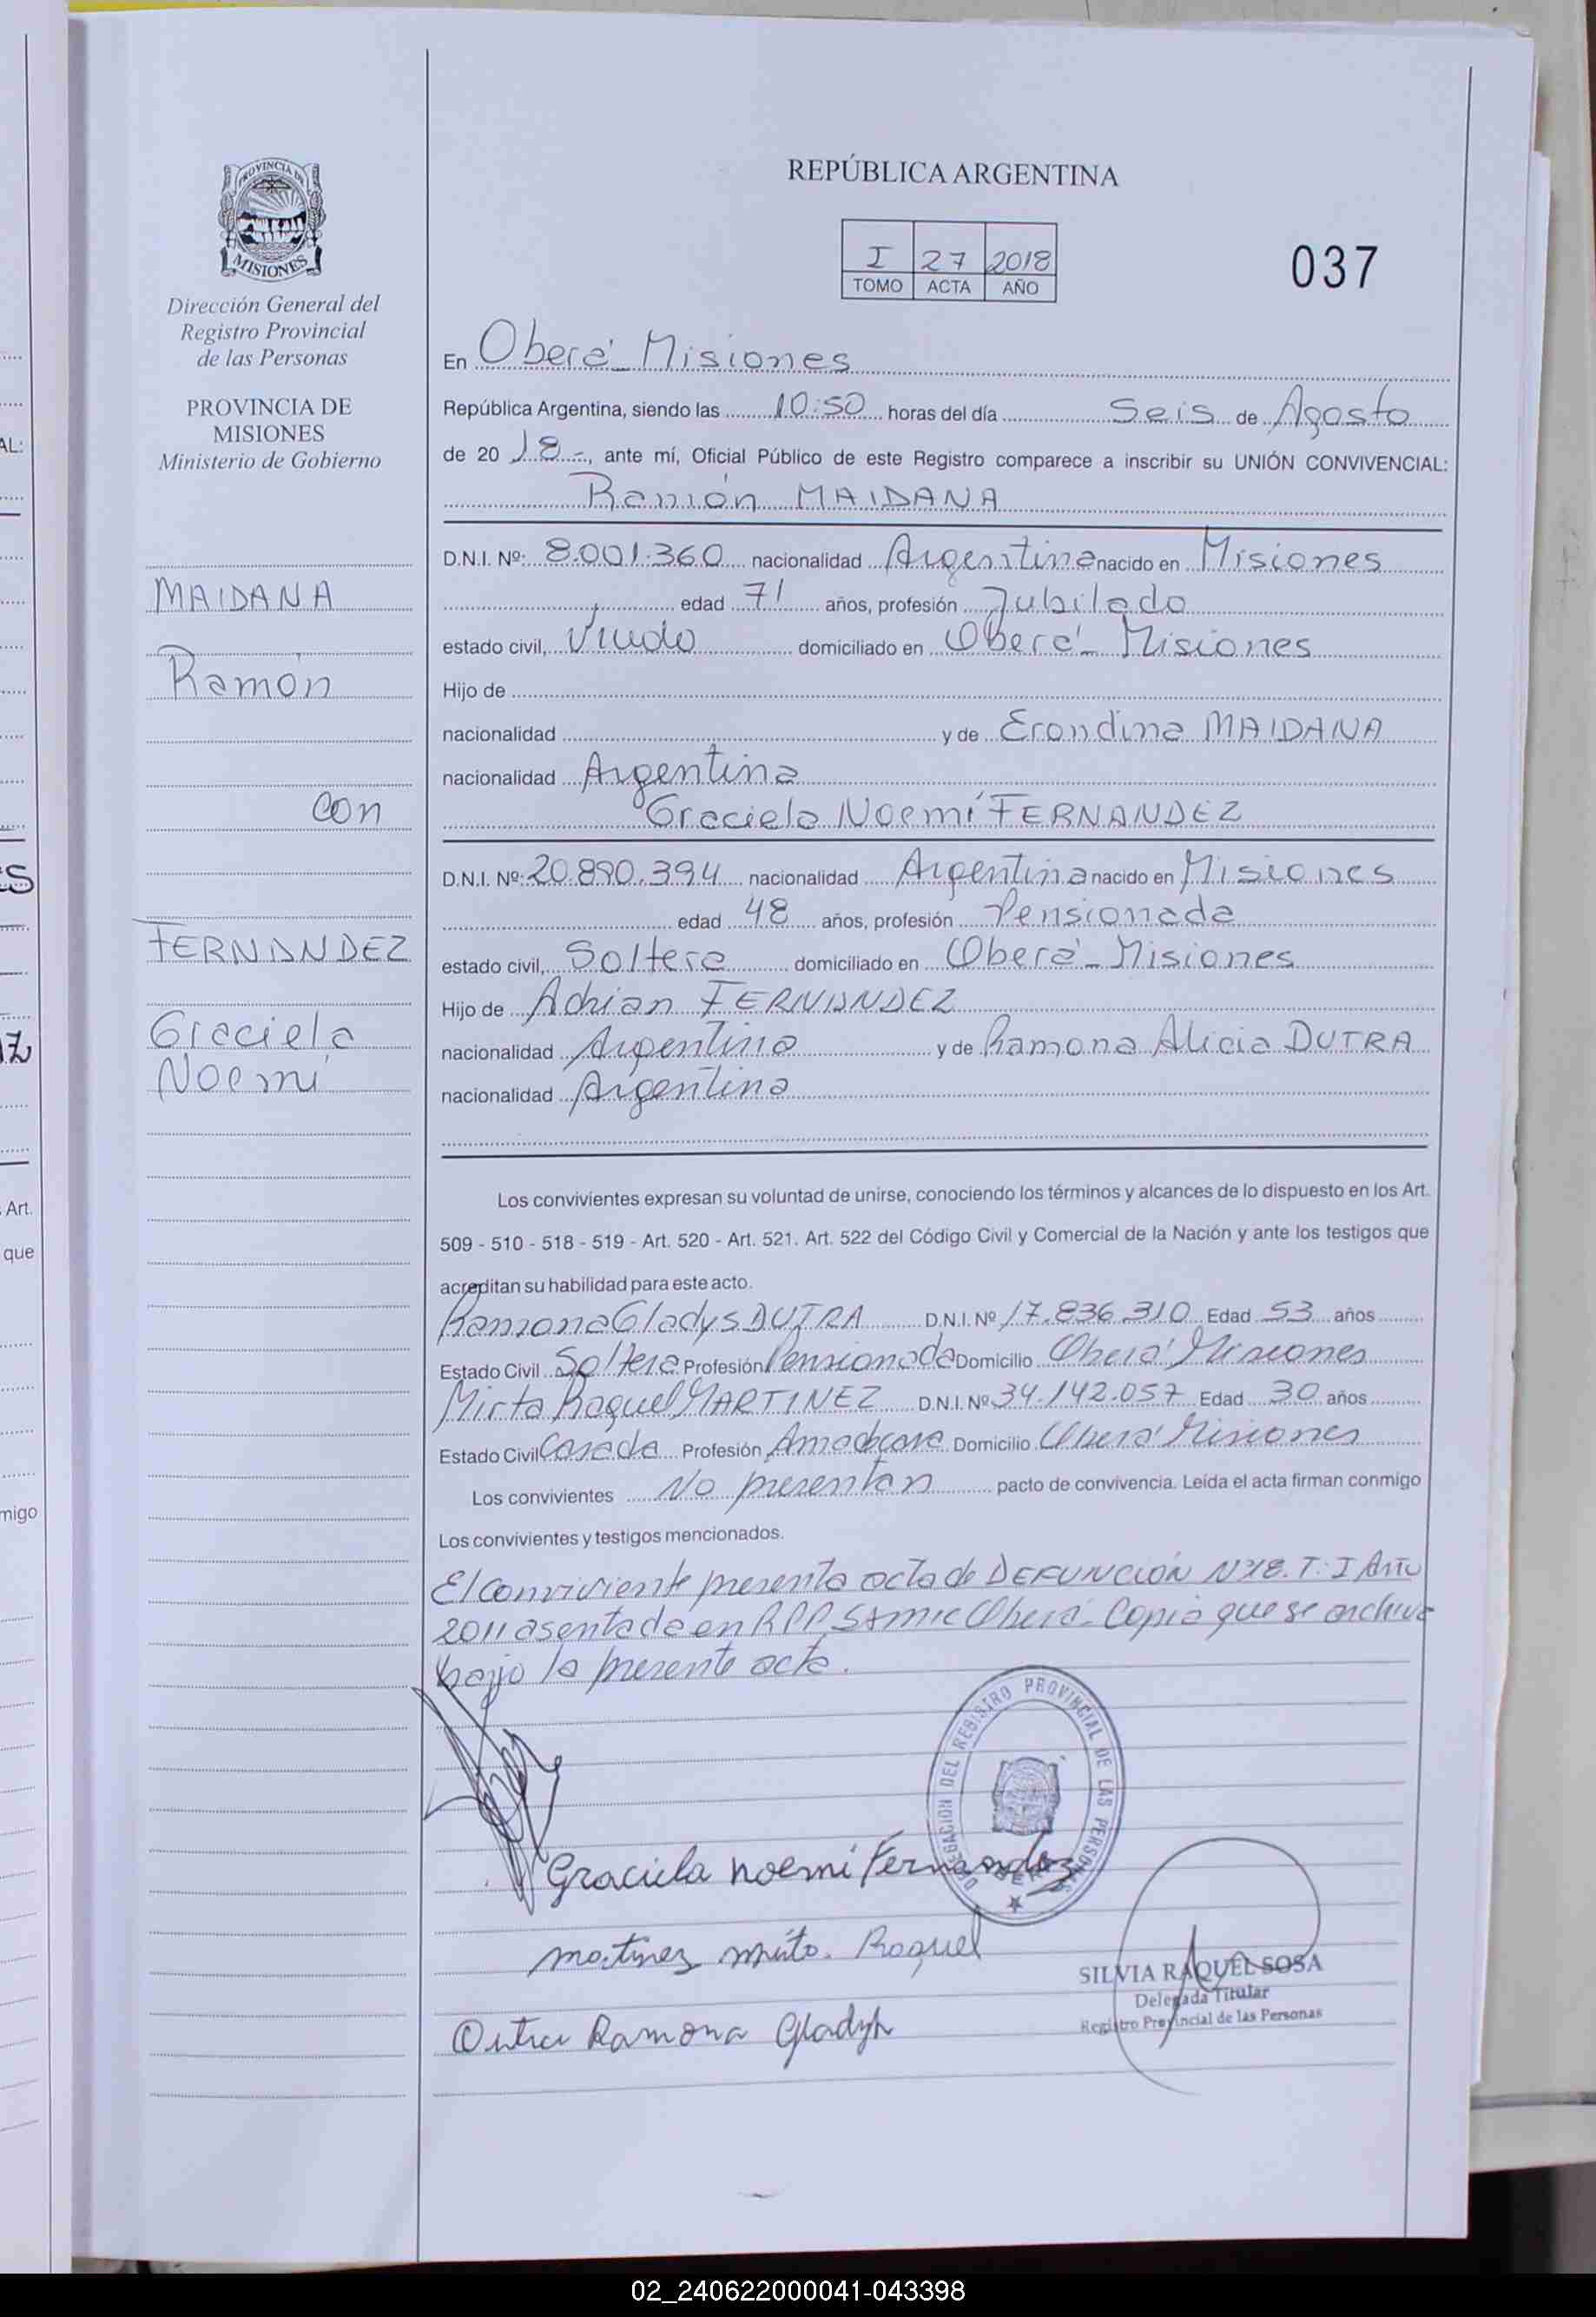 PROVINCIA DE
MISIONES
Dirección General del
Registro Provincial
de las Personas
PROVINCIA DE
MISIONES
Ministerio de Gobierno
MAIDANA
Ramón
con
FERNANDEZ
Graciela
Noemí
REPÚBLICA ARGENTINA
I 27 2018
TOMO ACTA AÑO
037
En Oberá - Misiones
República Argentina, siendo las 10:50 horas del día Seis de Agosto
de 20 18 -, ante mí, Oficial Público de este Registro comparece a inscribir su UNIÓN CONVIVENCIAL:
Ramón MAIDANA
D.N.I. Nº: 8.001.360 nacionalidad Argentina nacido en Misiones
edad 71 años, profesión Jubilado
estado civil, Viudo domiciliado en Oberá - Misiones
Hijo de
nacionalidad y de Erondina MAIDANA
nacionalidad Argentina
Graciela Noemí FERNANDEZ
D.N.I. Nº: 20.890.394 nacionalidad Argentina nacido en Misiones
edad 48 años, profesión Pensionada
estado civil, Soltera domiciliado en Oberá - Misiones
Hijo de Adrian FERNANDEZ
nacionalidad Argentina y de Ramona Alicia DUTRA
nacionalidad Argentina
Los convivientes expresan su voluntad de unirse, conociendo los términos y alcances de lo dispuesto en los Art.
509 - 510 - 518 - 519 - Art. 520 - Art. 521. Art. 522 del Código Civil y Comercial de la Nación y ante los testigos que
acreditan su habilidad para este acto.
Ramona Gladys DUTRA D.N.I. Nº 17.836.310 Edad 53 años
Estado Civil Soltera Profesión Pensionada Domicilio Oberá Misiones
Mirta Raquel MARTINEZ D.N.I. Nº 34.142.057 Edad 30 años
Estado Civil Casada Profesión Ama de casa Domicilio Oberá Misiones
Los convivientes No presentan pacto de convivencia. Leída el acta firman conmigo
Los convivientes y testigos mencionados.
El conviviente presenta acta de DEFUNCIÓN Nº 18. T: I Año
2011 asentada en RPP. SAMIC Oberá - Copia que se archiva
bajo la presente acta.
DELEGACION DEL REGISTRO PROVINCIAL DE LAS PERSONAS
Graciela Noemi Fernandez
Martinez Mirta. Raquel
Dutra Ramona Gladys
SILVIA RAQUEL SOSA
Delegada Titular
Registro Provincial de las Personas
AL:
Art.
que
migo
02_240622000041-043398